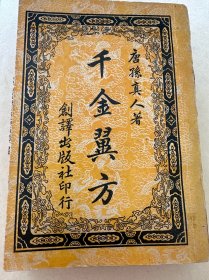 唐孫真人著
千金翼方
創譯出版社印行